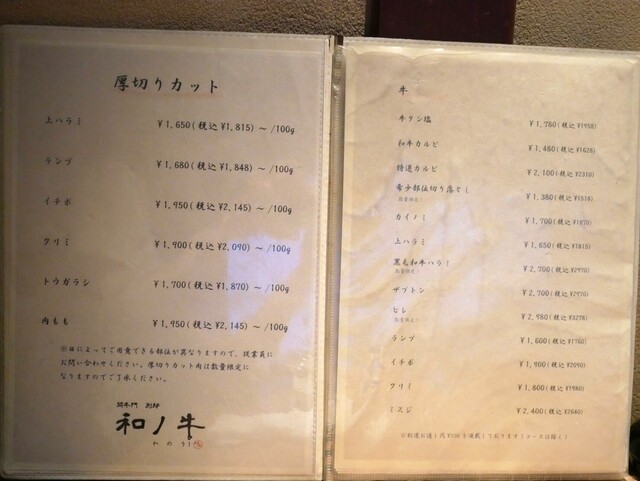 厚切りカット
上ハラミ ¥1,650(税込¥1,815)～/100g
ランプ ¥1,680(税込¥1,848)～/100g
イチボ ¥1,950(税込¥2,145)～/100g
クリミ ¥1,900(税込¥2,090)～/100g
トウガラシ ¥1,700(税込¥1,870)～/100g
内もも ¥1,950(税込¥2,145)～/100g
※日によってご用意できる部位が異なりますので、従業員に
お問い合わせください。厚切りカット肉は数量限定に
なりますのでご了承ください。
別邸
和ノ牛
わのうし
牛
牛タン塩 ¥1,780(税込¥1958)
和牛カルビ ¥1,480(税込¥1628)
特選カルビ ¥2,100(税込¥2310)
希少部位切り落とし ¥1,380(税込¥1518)
数量限定！
カイノミ ¥1,700(税込¥1870)
上ハラミ ¥1,650(税込¥1815)
黒毛和牛ハラミ ¥2,700(税込¥2970)
数量限定！
ザブトン ¥2,700(税込¥2970)
ヒレ ¥2,980(税込¥3278)
数量限定！
ランプ ¥1,600(税込¥1760)
イチボ ¥1,900(税込¥2090)
クリミ ¥1,800(税込¥1980)
ミスジ ¥2,400(税込¥2640)